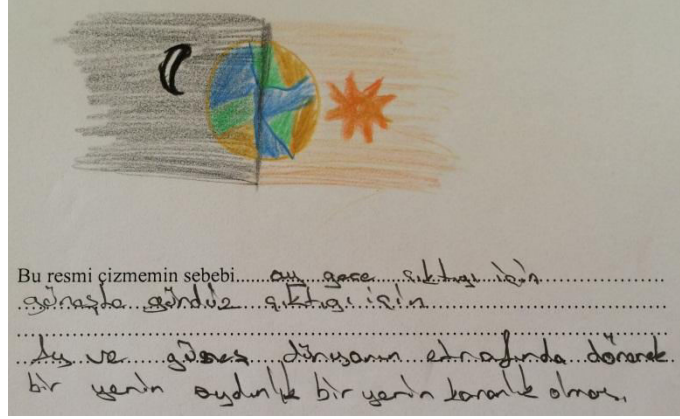 Bu resmi çizmemin sebebi.....ay gece çıktığı için
güneşte gündüz çıktığı için
Ay ve güneş dünyanın etrafında dönerek
bir yerin aydınlık bir yerin karanlık olması.